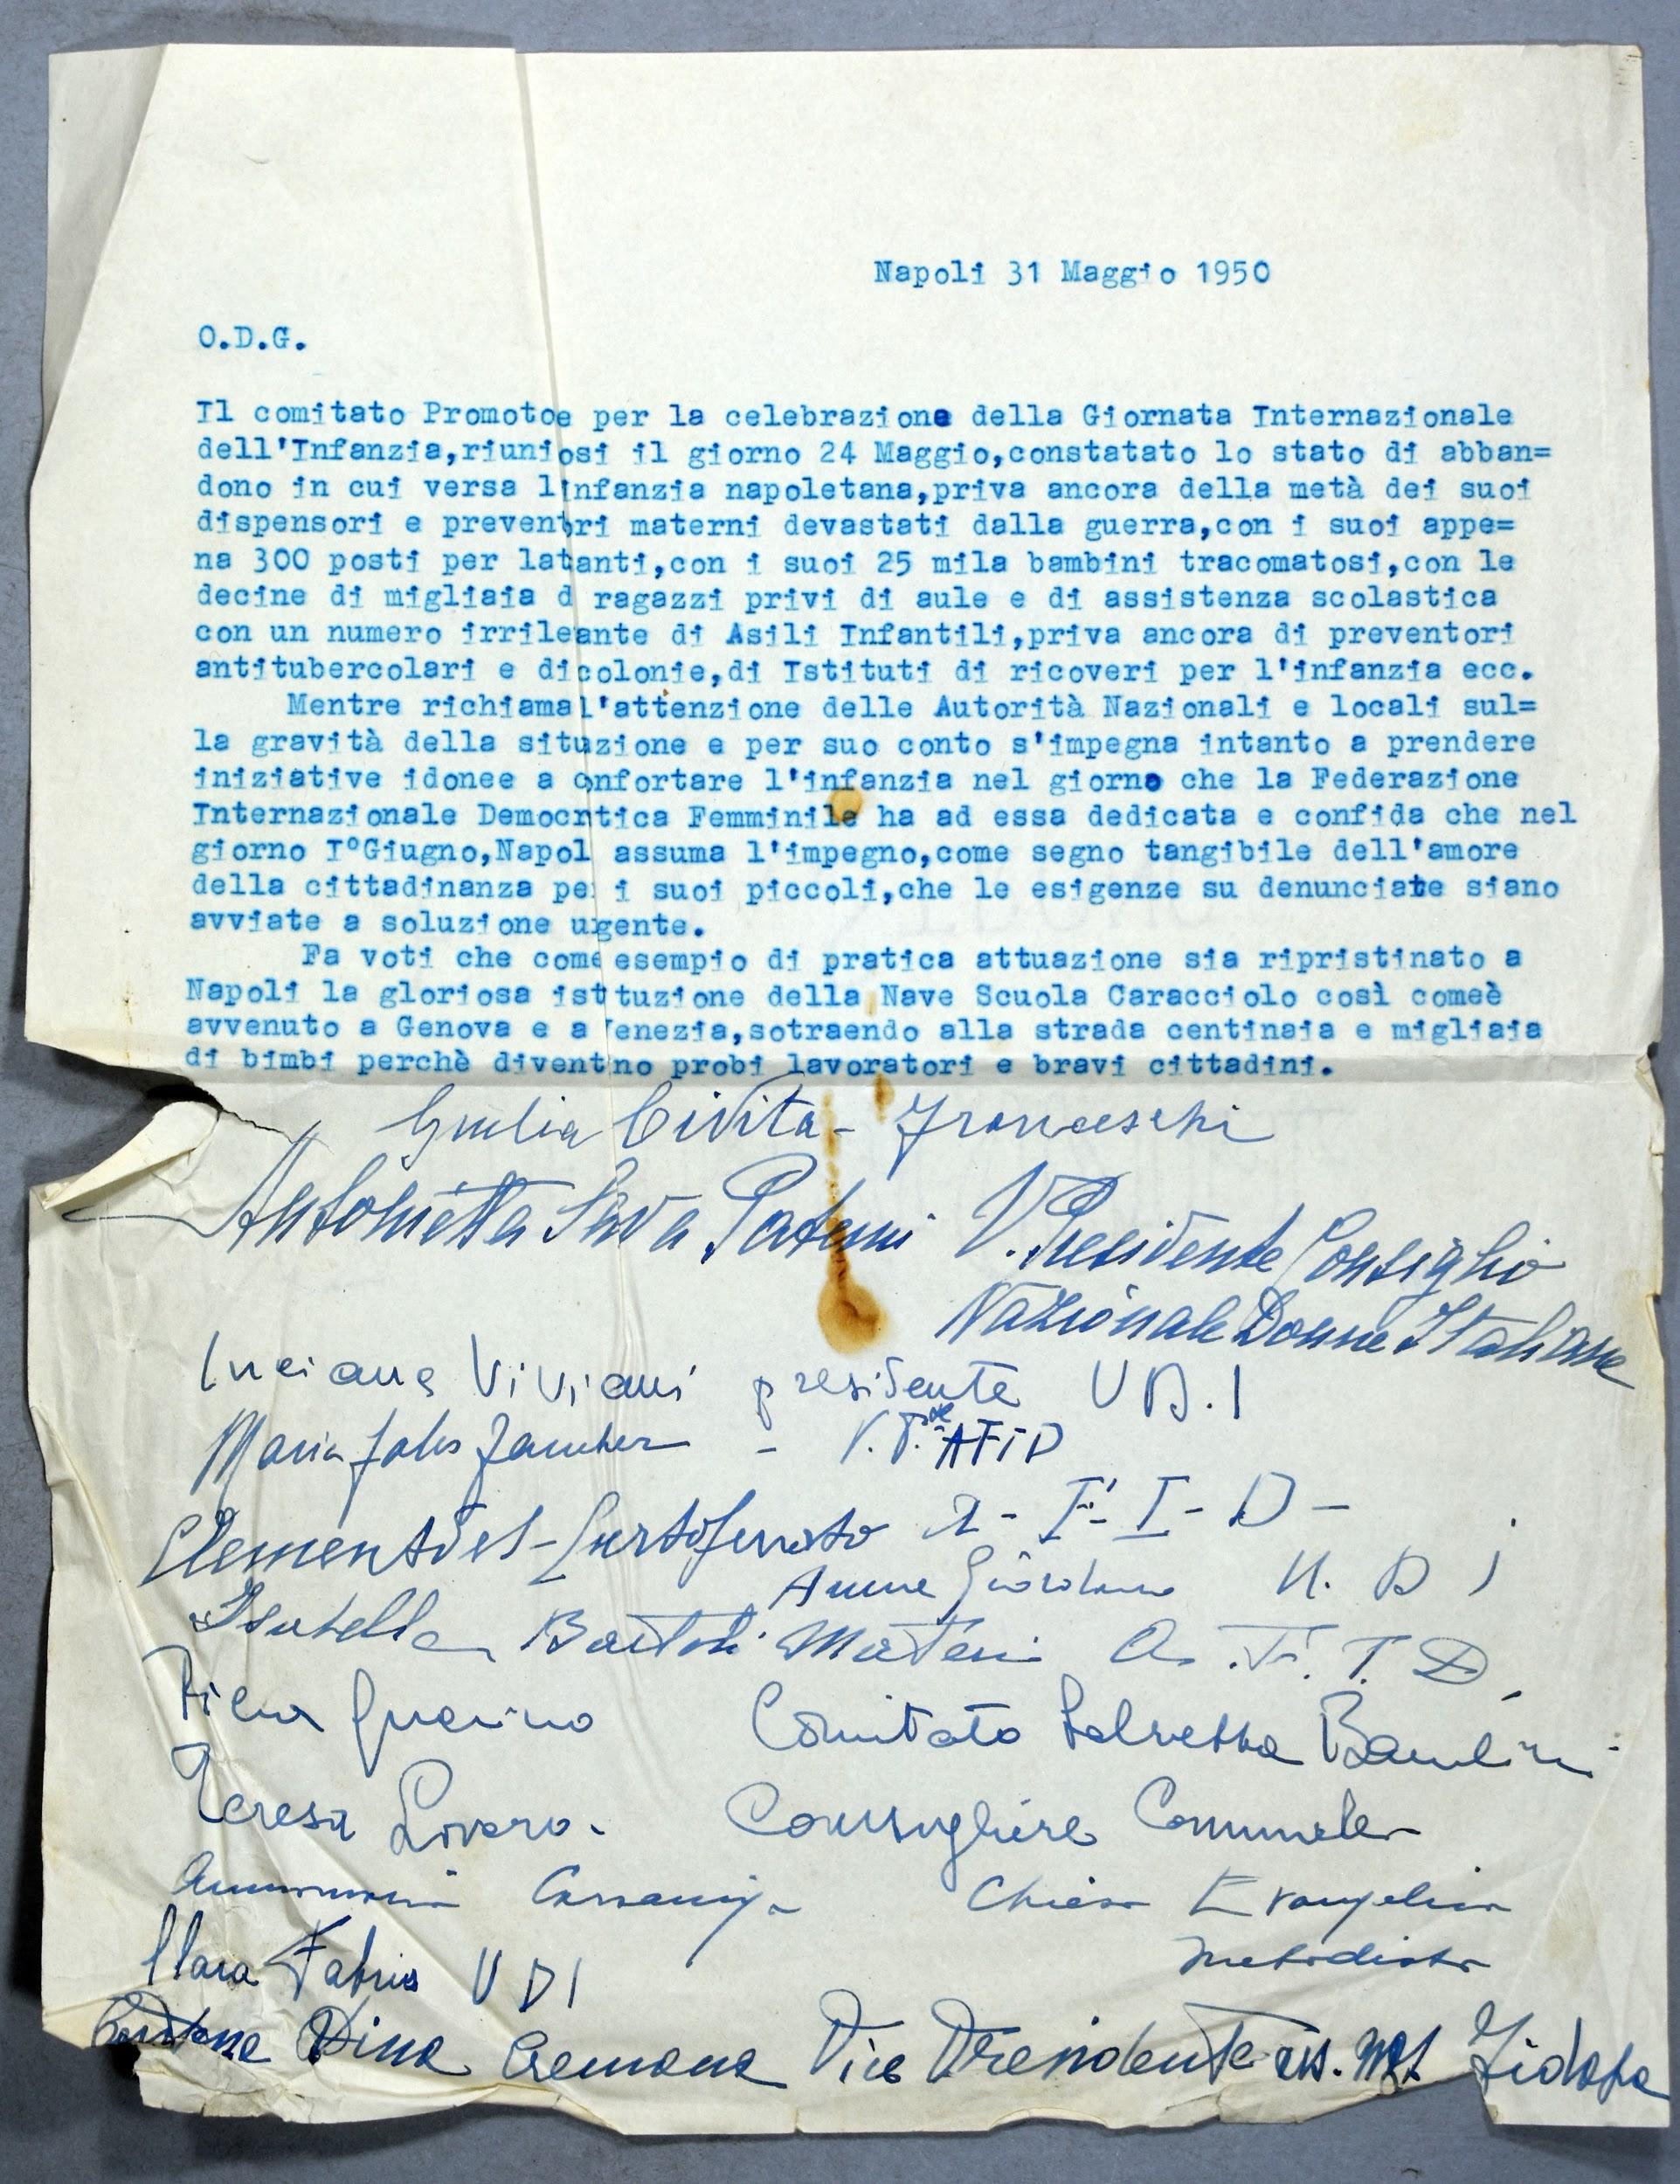 Napoli 31 Maggio 1950
O.D.G.
Il comitato Promotoe per la celebrazione della Giornata Internazionale
dell'Infanzia,riuniosi il giorno 24 Maggio,constatato lo stato di abban=
dono in cui versa l'infanzia napoletana,priva ancora della metà dei suoi
dispensori e preventri materni devastati dalla guerra,con i suoi appe=
na 300 posti per latanti,con i suoi 25 mila bambini tracomatosi,con le
decine di migliaia d ragazzi privi di aule e di assistenza scolastica
con un numero irrileante di Asili Infantili,priva ancora di preventori
antitubercolari e dicolonie,di Istituti di ricoveri per l'infanzia ecc.
Mentre richiama l'attenzione delle Autorità Nazionali e locali sul=
la gravità della situzione e per suo conto s'impegna intanto a prendere
iniziative idonee a onfortare l'infanzia nel giorno che la Federazione
Internazionale Democrtica Femminile ha ad essa dedicata e confida che nel
giorno I°Giugno,Napol assuma l'impegno,come segno tangibile dell'amore
della cittadinanza pe i suoi piccoli,che le esigenze su denunciate siano
avviate a soluzione urgente.
Fa voti che come esempio di pratica attuazione sia ripristinato a
Napoli la gloriosa isttuzione della Nave Scuola Caracciolo così comeè
avvenuto a Genova e a Venezia,sotraendo alla strada centinaia e migliaia
di bimbi perchè diventno probi lavoratori e bravi cittadini.
Giulia Civita-Franceschi
Antonietta V.Presidente Consiglio
Nazionale Donne Italiane
Luciana Viviani presidente U D.I
Maria V.P. AFID
A-F-I-D-
Anna Giordano U. D I
Isabella Bartoli A.F.I.D.
Piera Guerino Comitato Salvezza Bambini
Teresa Consigliere Comunale
Chiesa Evangelica
metodista
Clara Fabris UDI
Dina Cremona Vice Presidente